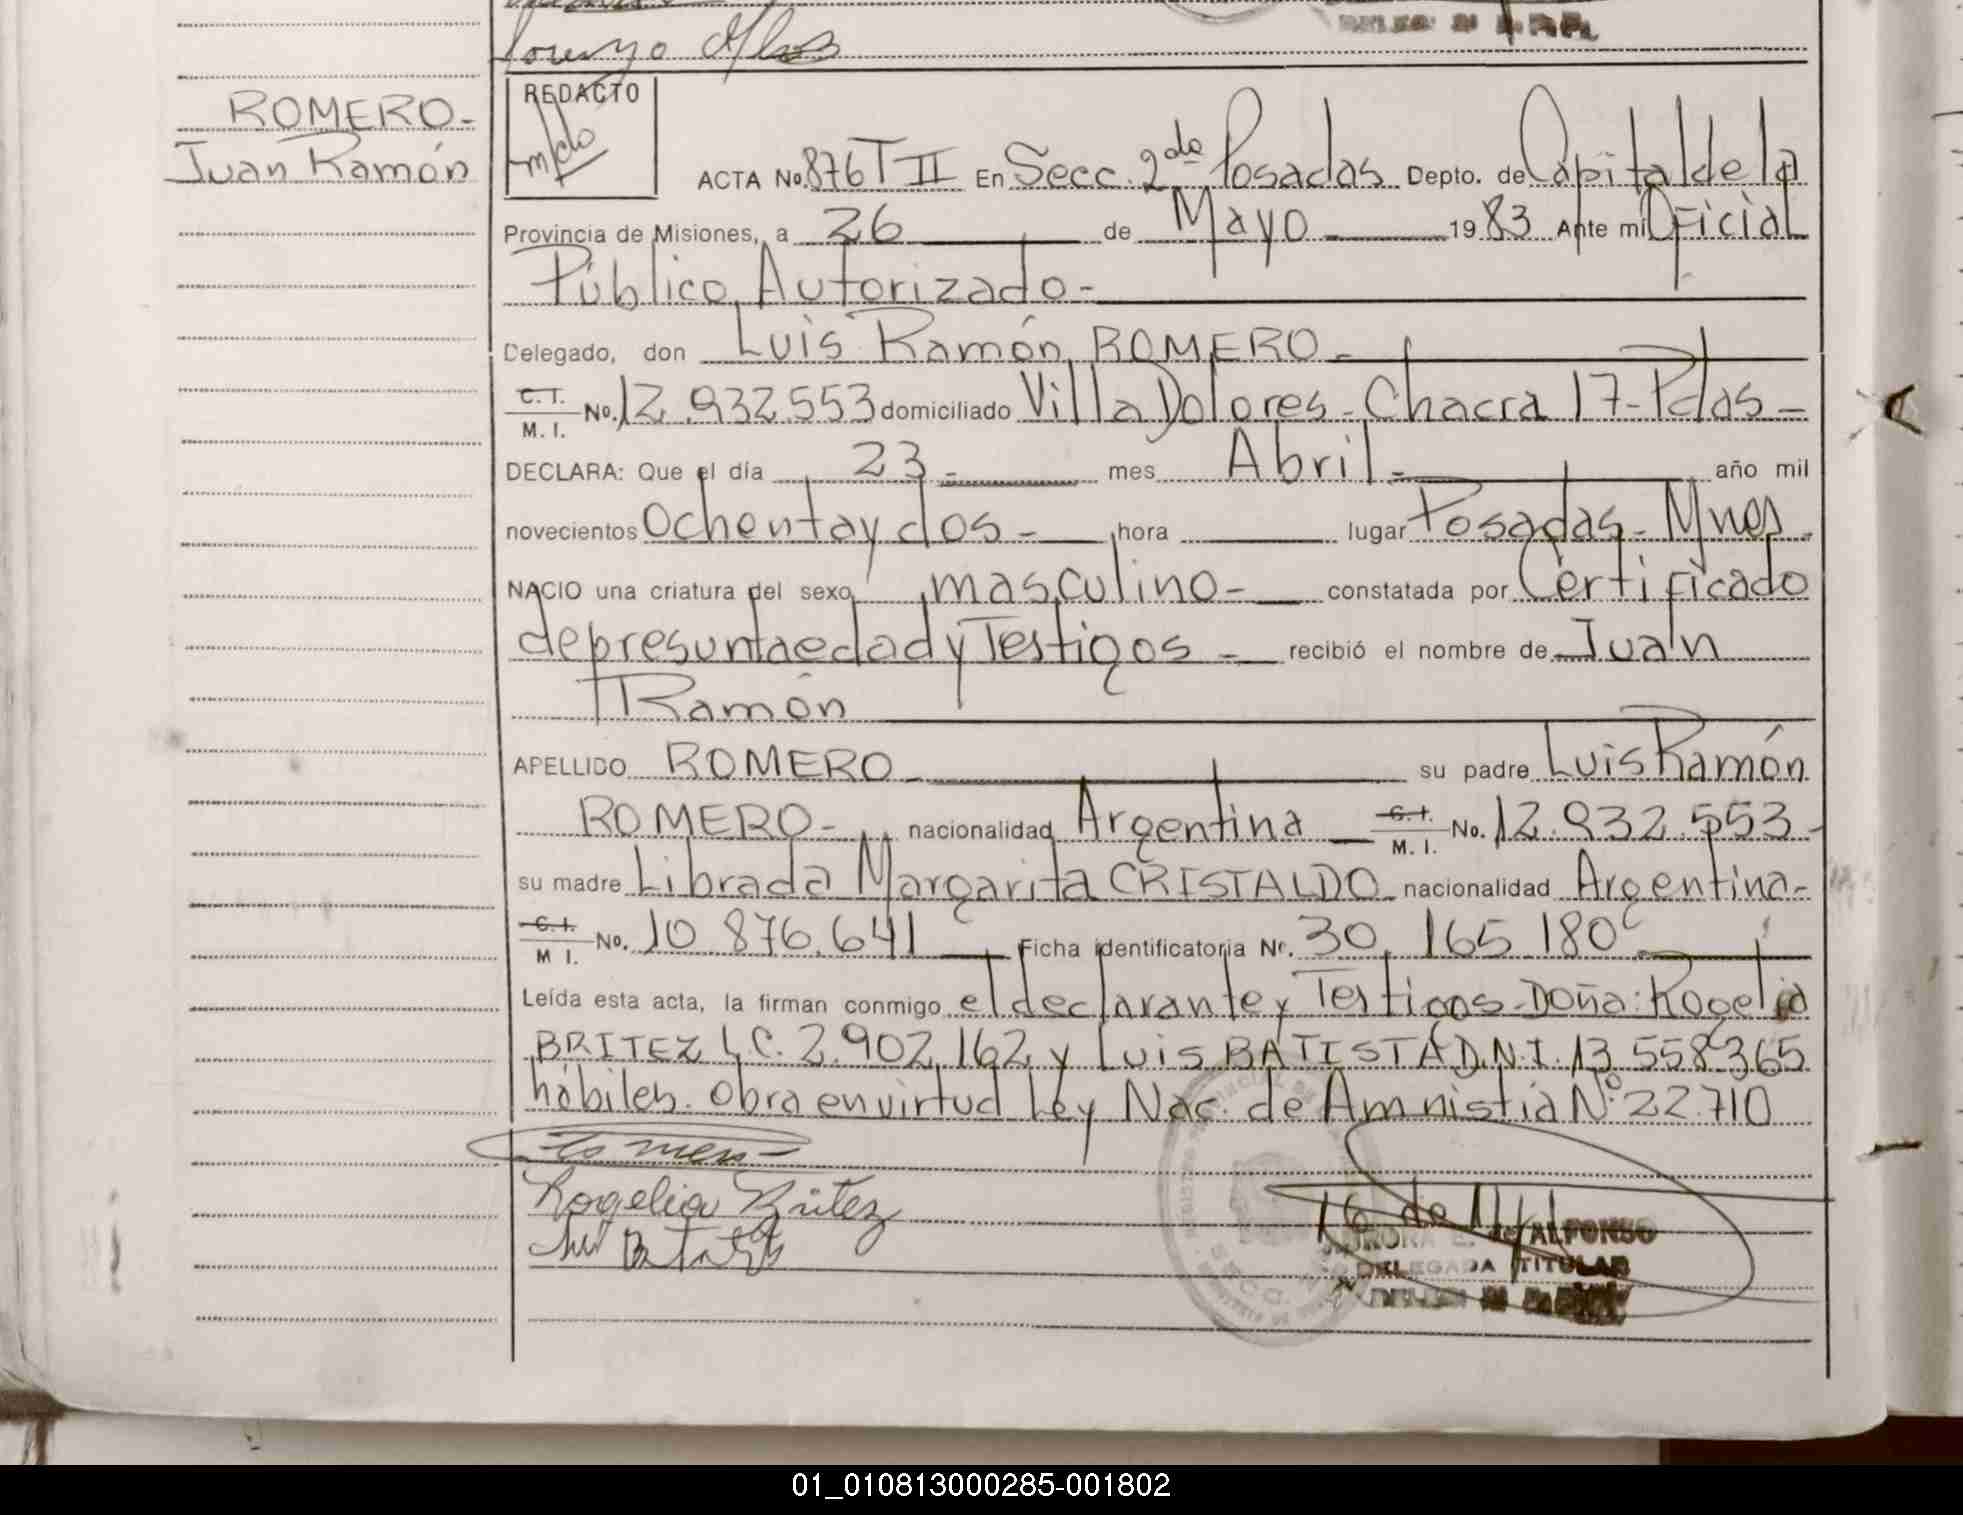 Lorenzo
ROMERO-
Juan Ramón
REDACTO
ACTA No. 876 T II En Secc. 2da Posadas Depto. de Capital de la
Provincia de Misiones, a 26 de Mayo 1983 Ante mi Oficial
Público Autorizado-
Delegado, don Luis Ramón ROMERO-
C.I. M. I. No. 12.932.553 domiciliado Villa Dolores-Chacra 17-Pdas-
DECLARA: Que el día 23- mes Abril- año mil
novecientos Ochenta y dos- hora lugar Posadas-Mnes-
NACIO una criatura del sexo masculino- constatada por Certificado
de presunta edad y Testigos- recibió el nombre de Juan
Ramón
APELLIDO ROMERO- su padre Luis Ramón
ROMERO- nacionalidad Argentina C.I. M. I. No. 12.932.553-
su madre Librada Margarita CRISTALDO- nacionalidad Argentina-
C.I. M I. No. 10.876.641 Ficha identificatoria Nº. 30.165.180
Leída esta acta, la firman conmigo el declarante y Testigos-Doña: Rogelia
BRITEZ L.C. 2.902.162 y Luis BATISTA D.N.I. 13.558.365
hábiles. Obra en virtud Ley Nac. de Amnistia Nº 22.710
Rogelia Britez
AURORA E. de ALFONSO
DELEGADA TITULAR
01_010813000285-001802